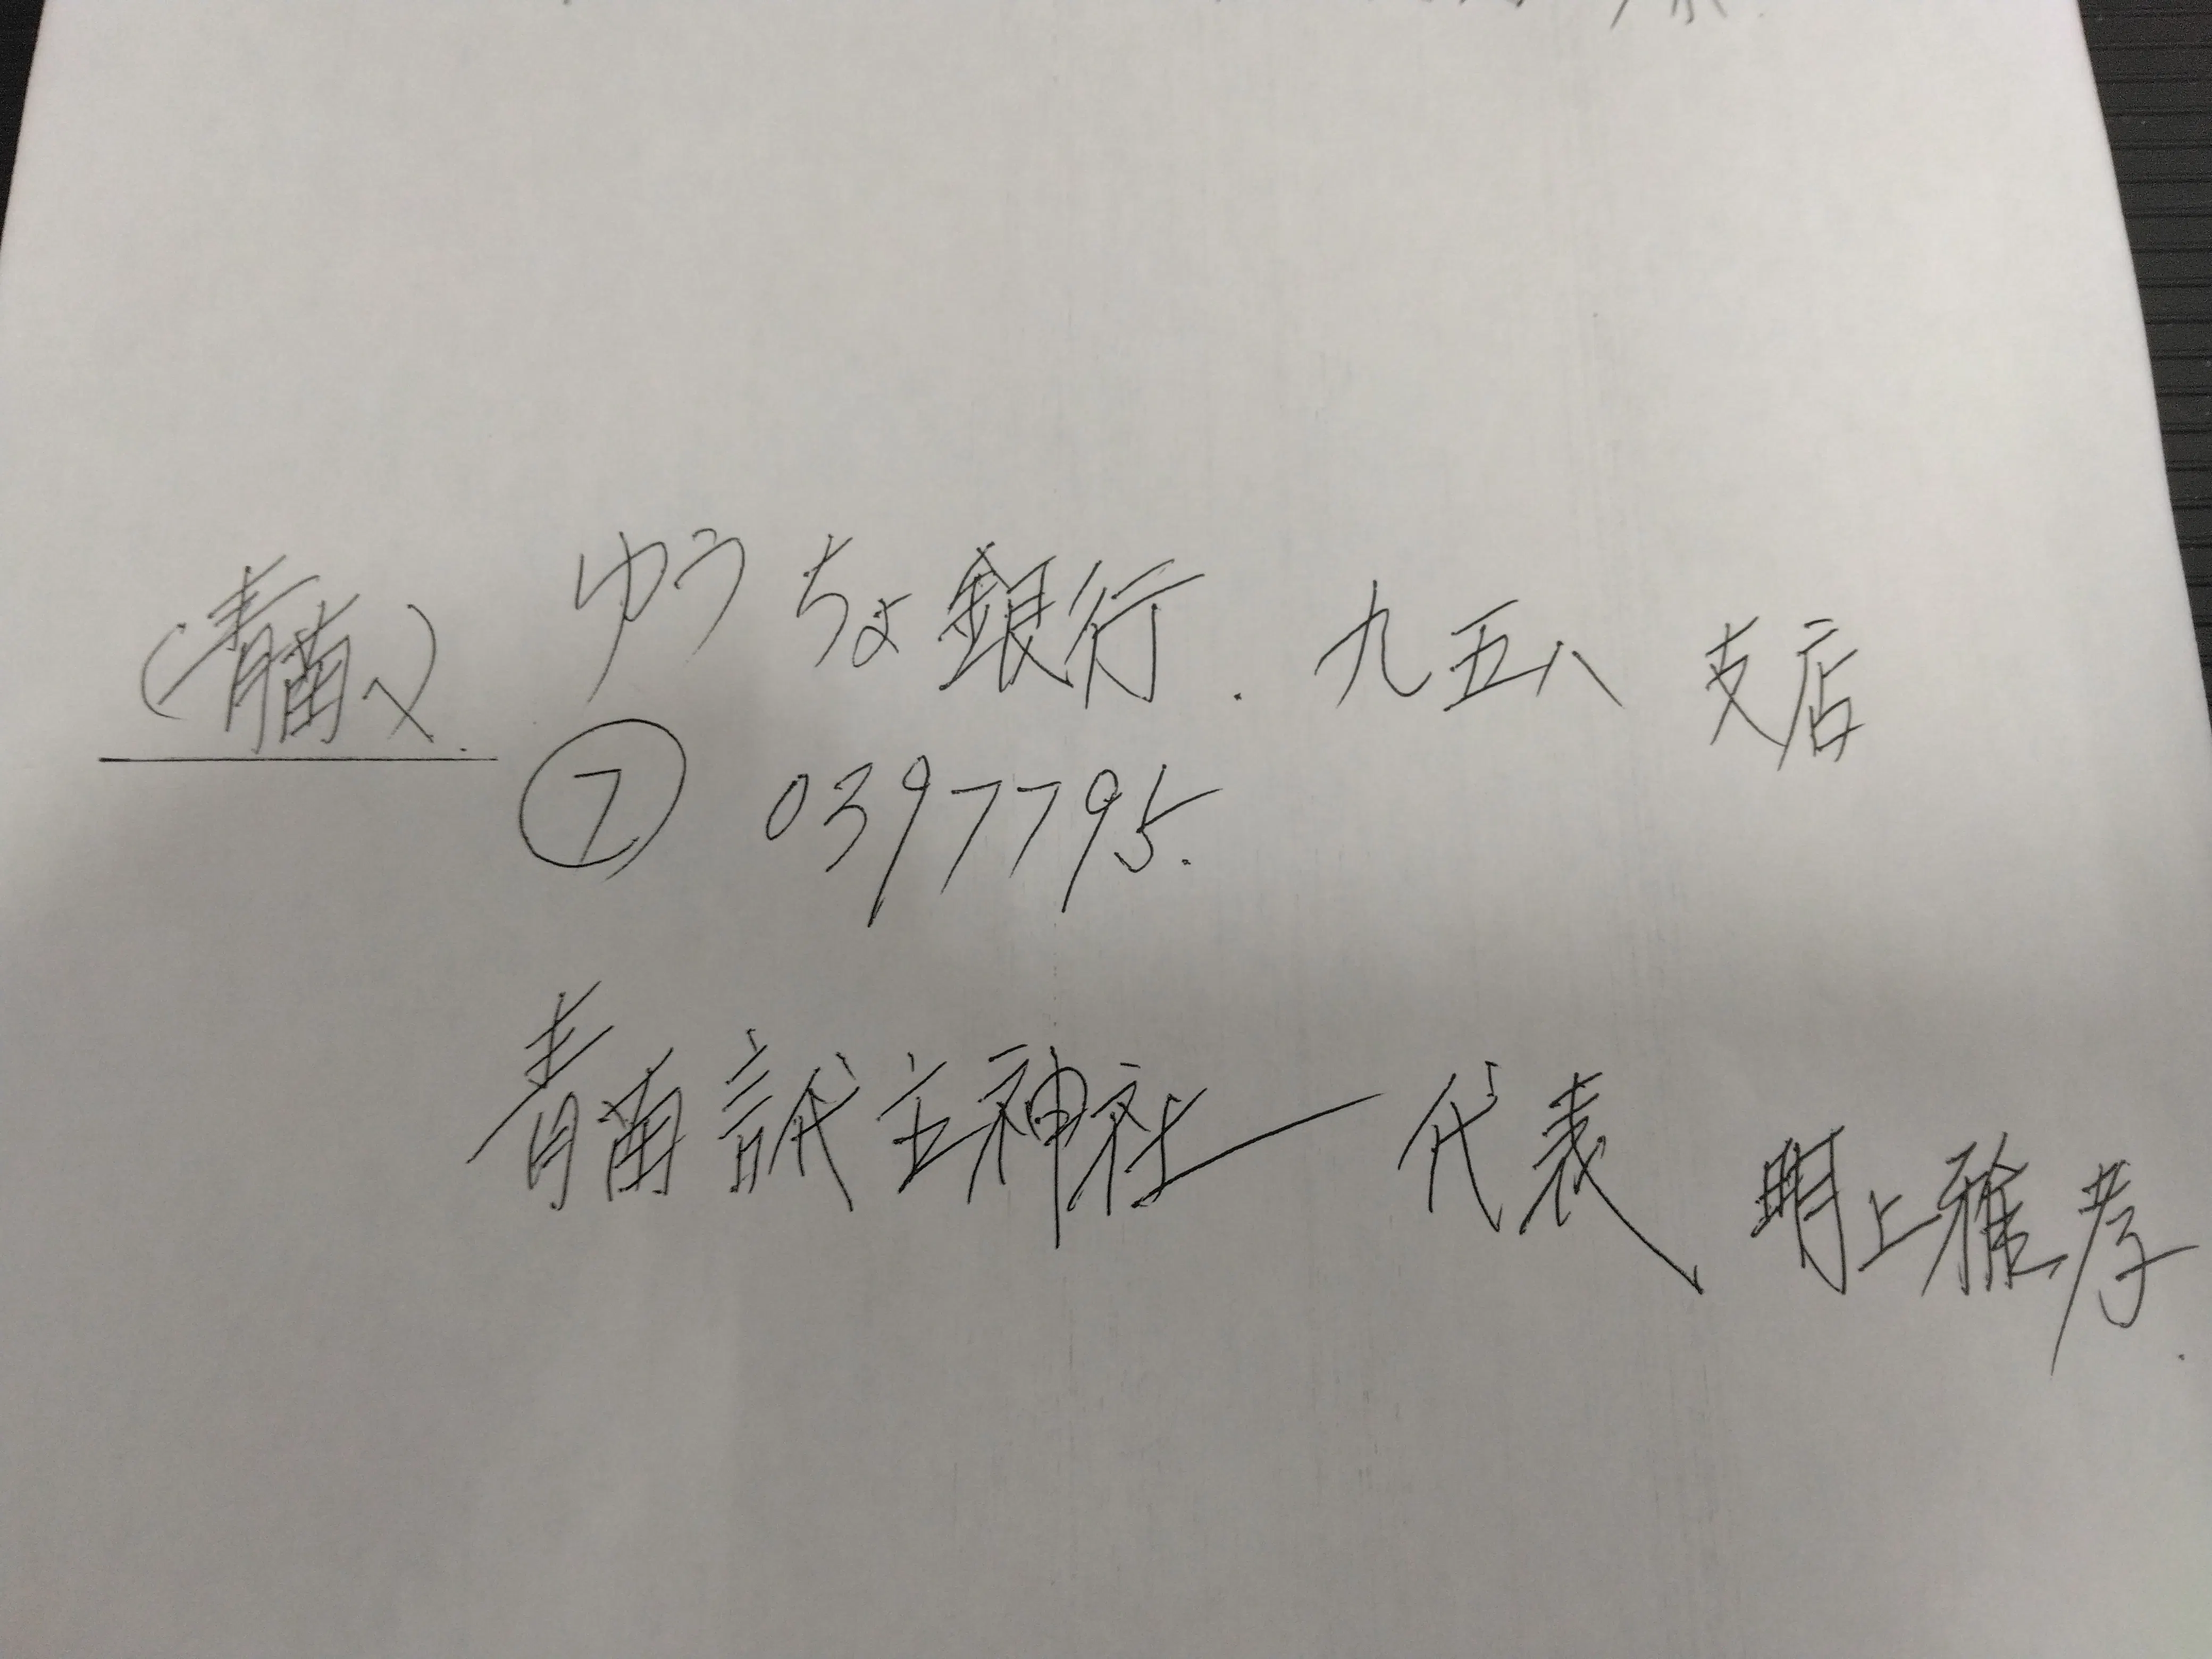 (青南へ)
ゆうちょ銀行. 九五八 支店
⑦ 0397795.
神社 代表 明上雅孝.